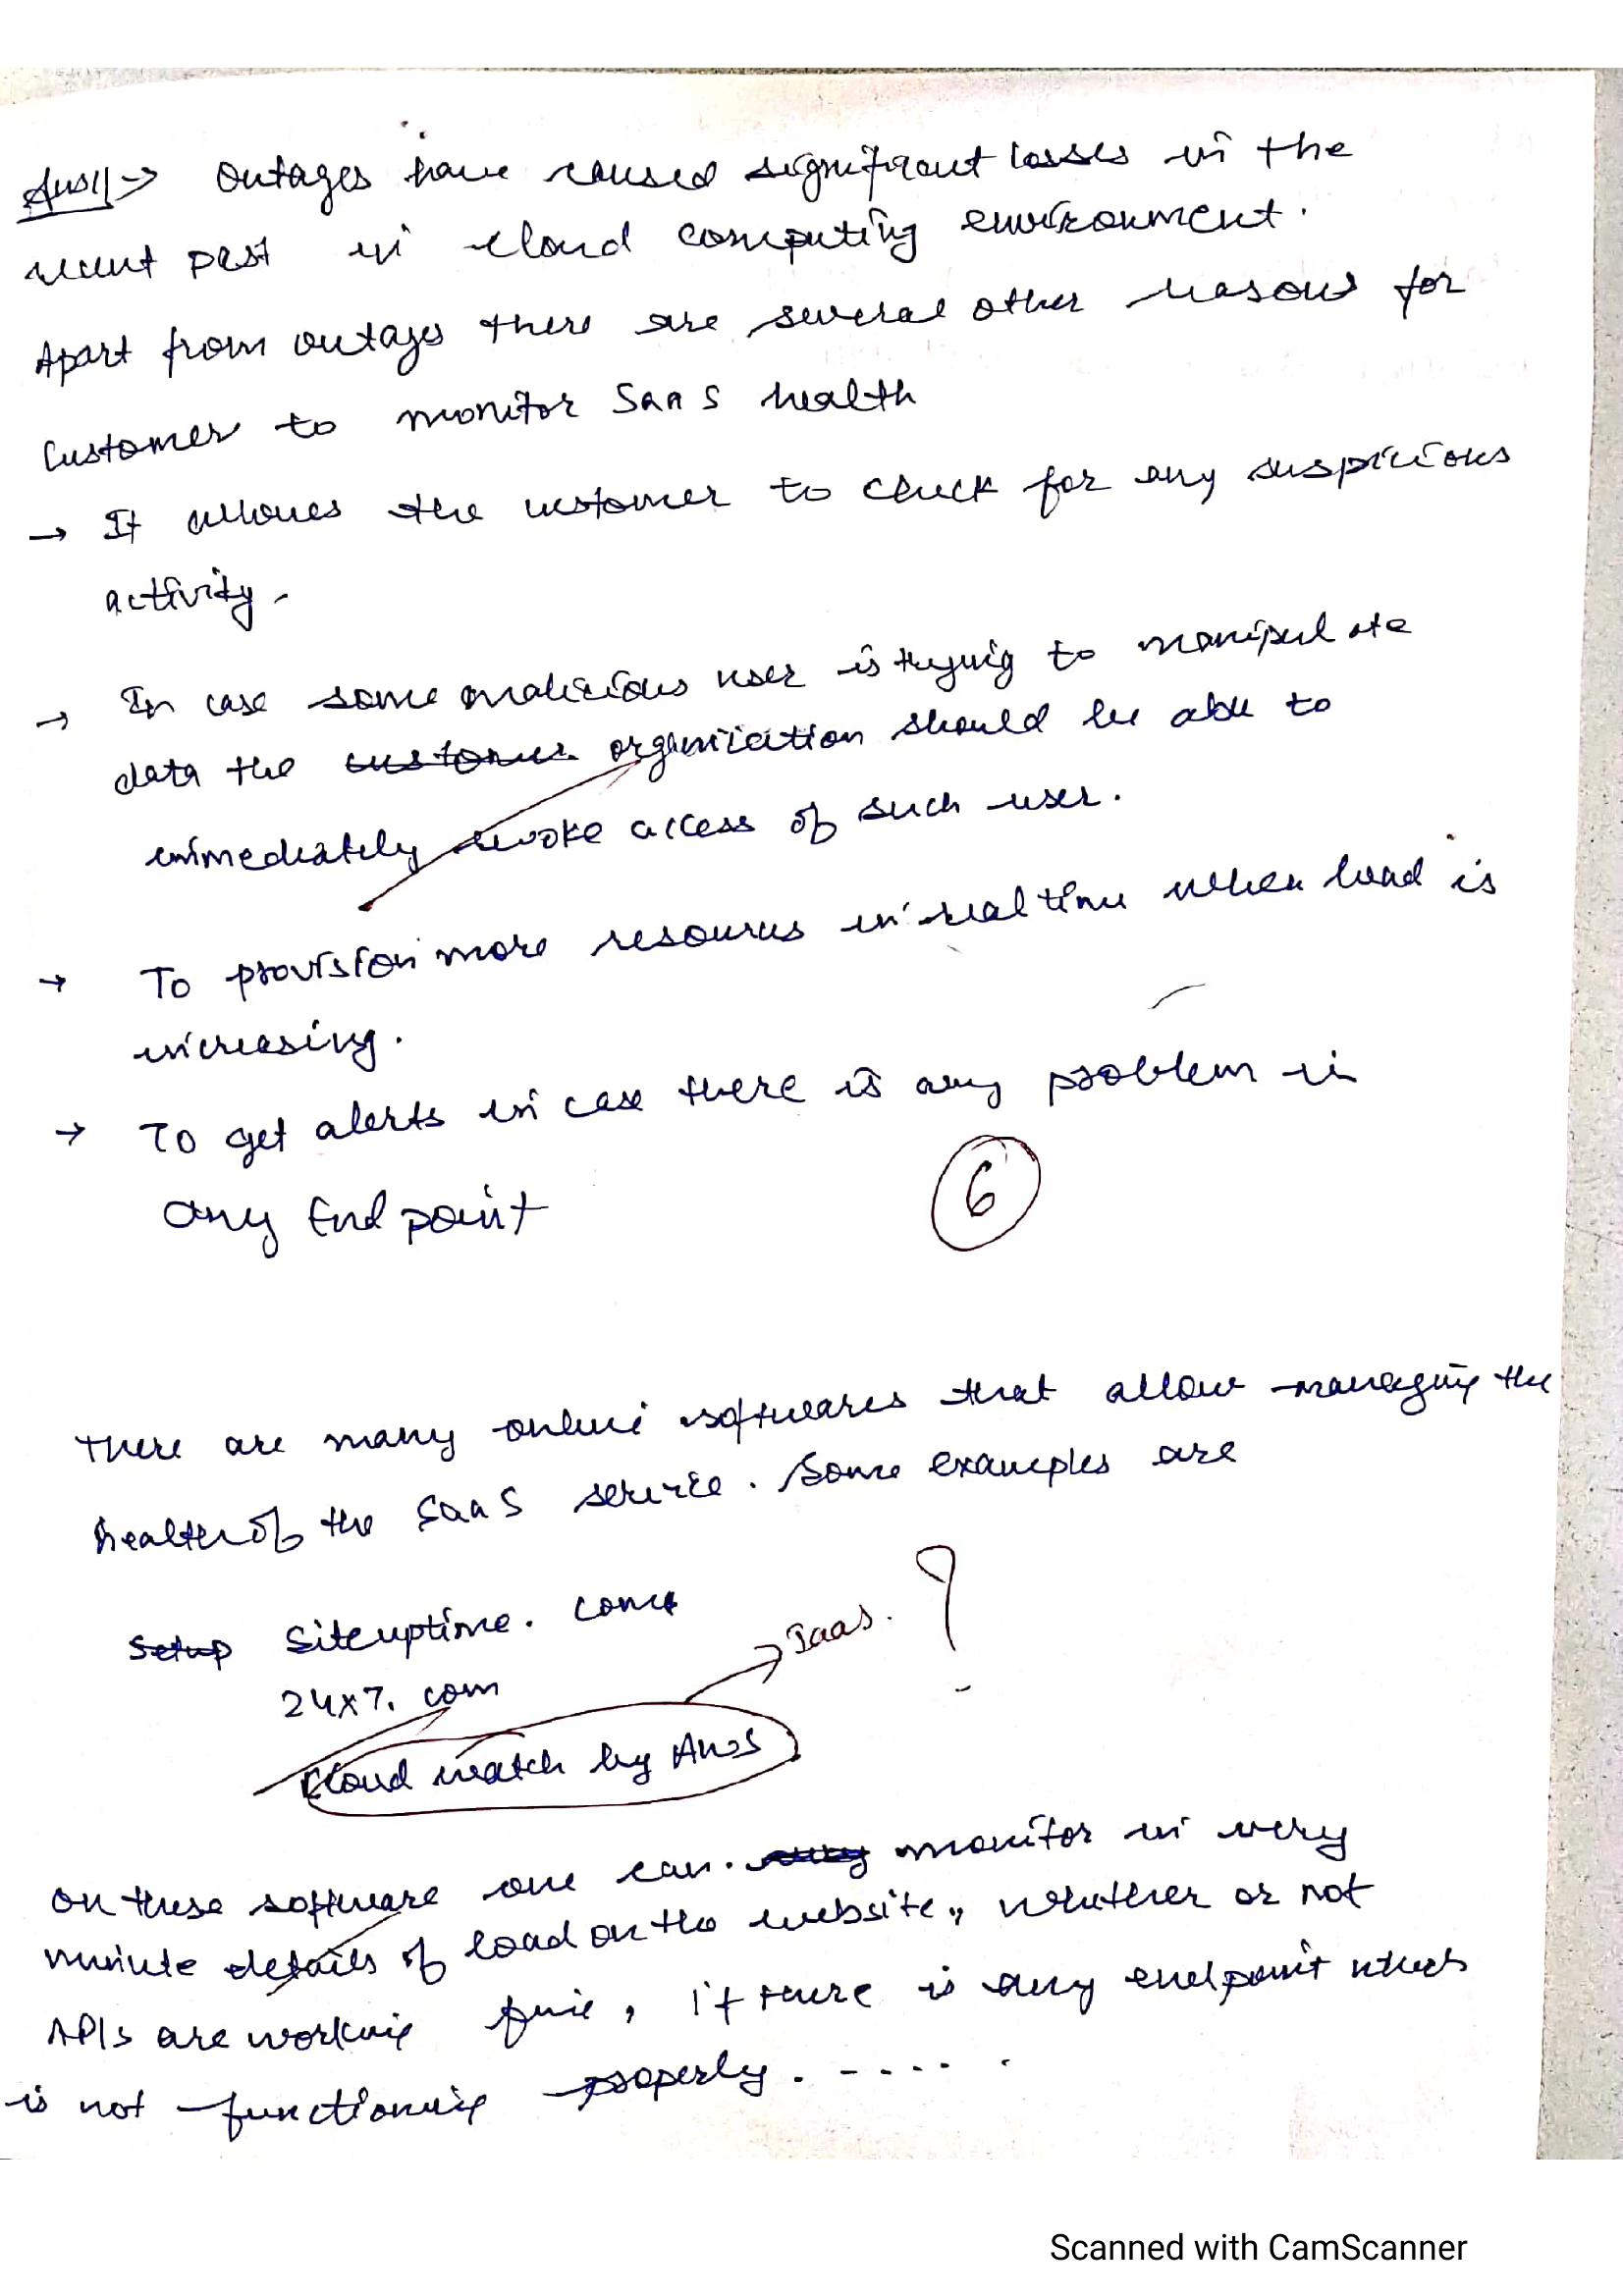 Ans11 → Outages have caused significant losses in the
recent past in cloud computing environment.
Apart from outages there are several other reasons for
Customer to monitor SaaS health
→ It allows the customer to check for any suspicious
activity.
→ In case some malicious user is trying to manipulate
data the customer organization should be able to
immediately revoke access of such user.
→ To provision more resources in real time when load is
increasing.
→ To get alerts in case there is any problem in
any End point
6
There are many online softwares that allow managing the
health of the SaaS service. Some examples are
Setup Siteuptime. com
IaaS. ?
24x7. com
Cloud watch by AWS
On these software one can. monitor in very
minute details of load on the website, whether or not
APIs are working fine, if there is any endpoint which
is not functioning properly. - - - - .
Scanned with CamScanner